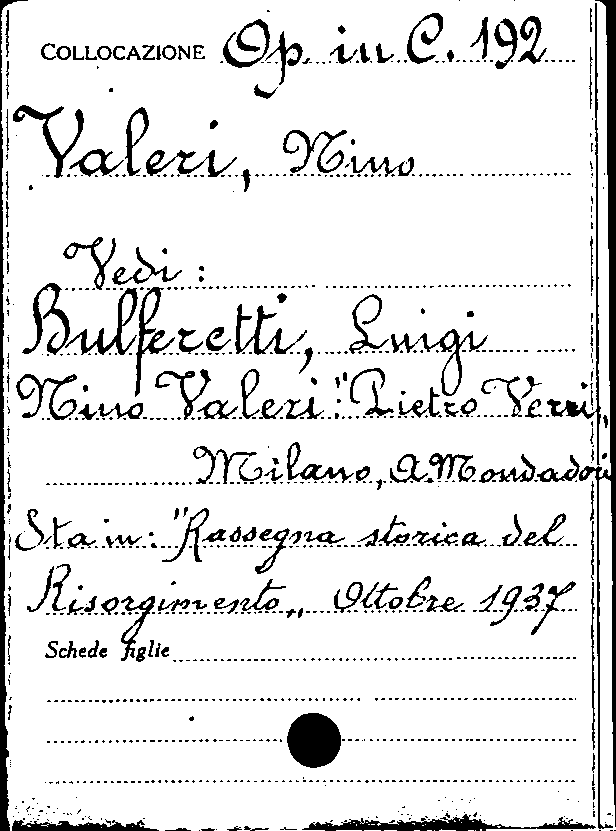 COLLOCAZIONE Op. in C. 192
Valeri, Nino
Vedi:
Bulferetti, Luigi
Nino Valeri: "Pietro Verri„
Milano, A. Mondadori
Sta in: "Rassegna storica del
Risorgimento„ Ottobre 1937
Schede figlie